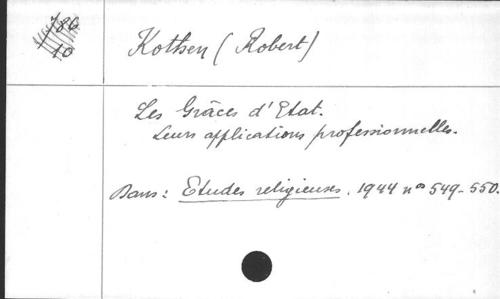 Kothen (Robert)
Les Grâces d'Etat.
Leurs applications professionnelles.
Dans : Etudes religieuses. 1944 nos 549-550.